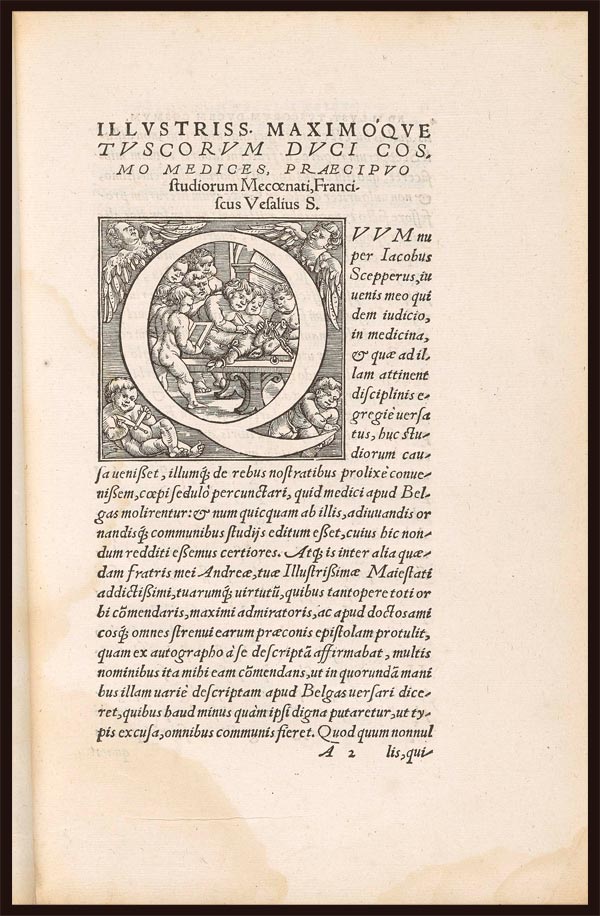 ILLVSTRISS. MAXIMO'QVE
TVSCORVM DVCI COS,
MO MEDICES, PRAECIPVO
studiorum Mecœnati, Franci-
scus Vesalius S.
QVVM nu
per Iacobus
Scepperus, iu
uenis meo qui
dem iudicio,
in medicina,
& quæ ad il-
lam attinent
disciplinis e-
gregiè uersa
tus, huc stu-
diorum cau-
sa uenißet, illumq́; de rebus nostratibus prolixè conue-
nißem, cœpi sedulò percunctari, quid medici apud Bel-
gas molirentur: & num quicquam ab illis, adiuuandis or
nandisq́; communibus studijs editum eßet, cuius hic non-
dum redditi eßemus certiores. Atq́; is inter alia quæ-
dam fratris mei Andreæ, tuæ Illustrißimæ Maiestati
addictißimi, tuarumq́; uirtutũ, quibus tantopere toti or
bi cõmendaris, maximi admiratoris, ac apud doctos ami
cosq́; omnes strenui earum præconis epistolam protulit,
quam ex autographo à se descriptã affirmabat, multis
nominibus ita mihi eam cõmendans, ut in quorundã mani
bus illam uariè descriptam apud Belgas uersari dice-
ret, quibus haud minus quàm ipsi digna putaretur, ut ty-
pis excusa, omnibus communis fieret. Quod quum nonnul
A 2 lis, qui-